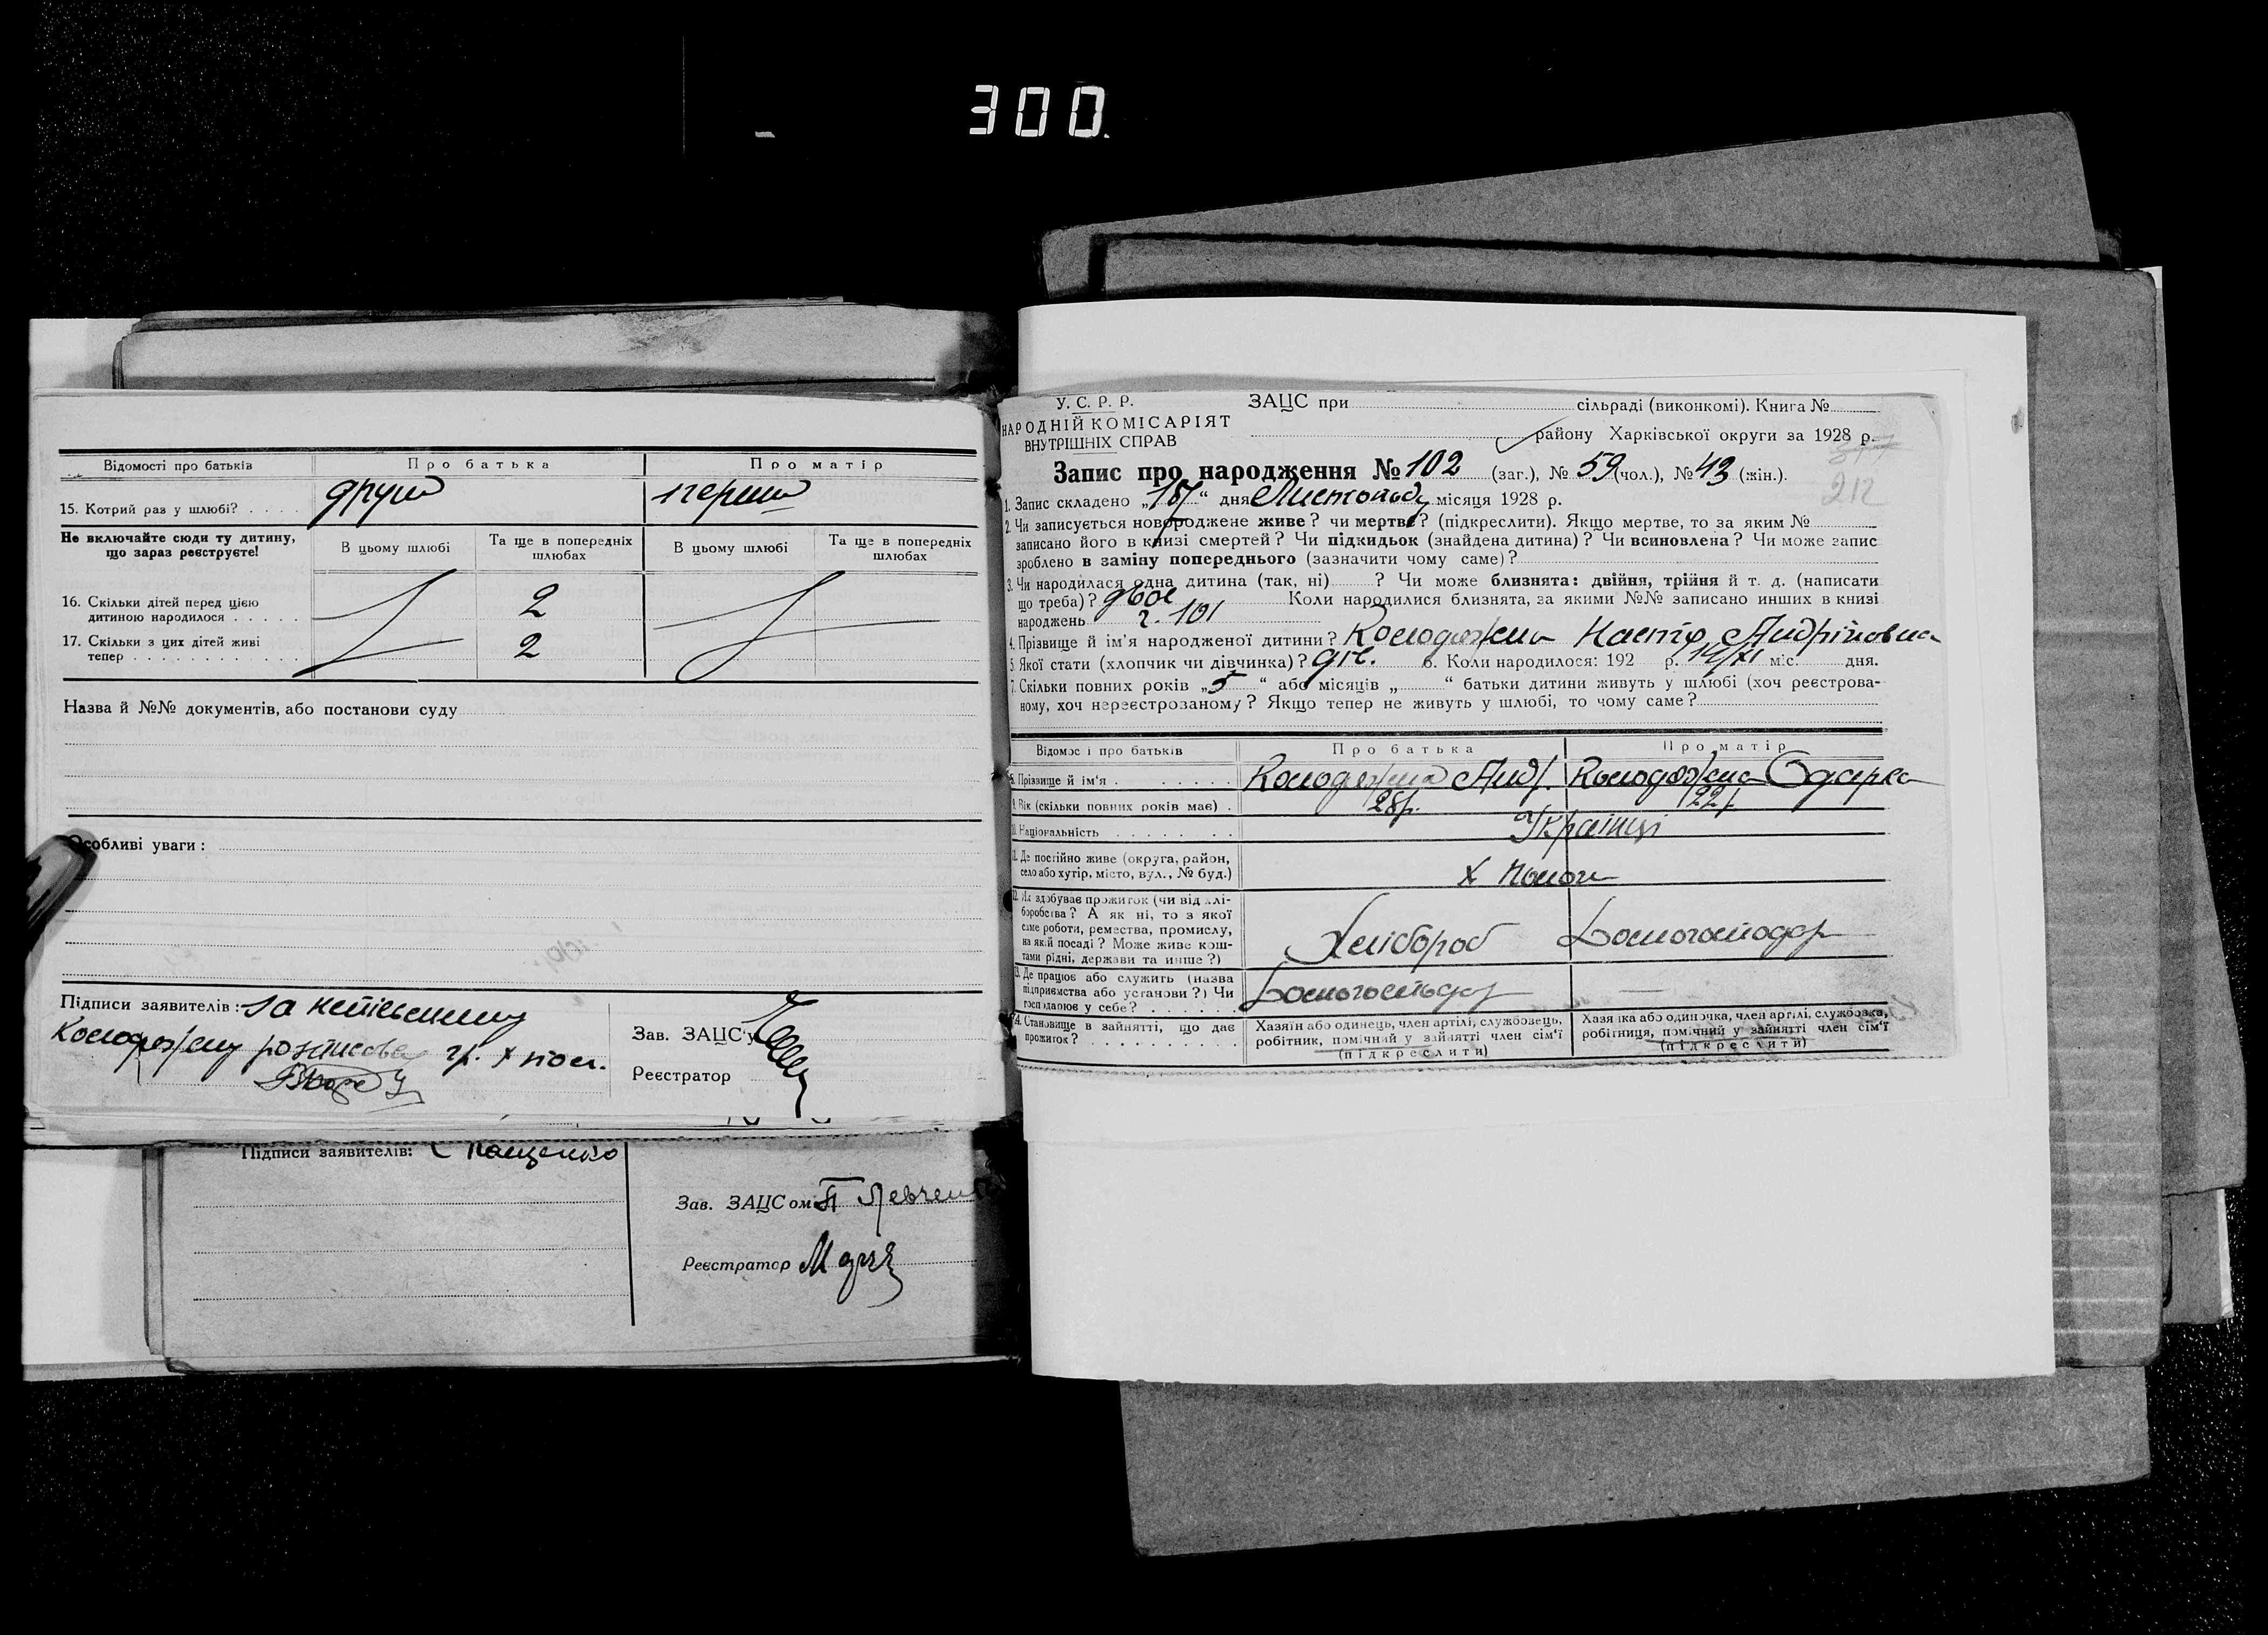 300.
Відомості про батьків Про батька Про матір
15. Котрий раз у шлюбі? другий перший
Не включайте сюди ту дитину, що зараз реєструєте!
В цьому шлюбі Та ще в попередніх шлюбах В цьому шлюбі Та ще в попередніх шлюбах
16. Скільки дітей перед цією
дитиною народилося 2
17. Скільки з цих дітей живі
тепер 2
Назва й №№ документів, або постанови суду
Особливі уваги:
Підписи заявителів: за
Зав. ЗАЦС'у
Реєстратор
Підписи заявителів:
Зав. ЗАЦСом П Левчен
Реєстратор
У. С. Р. Р.
НАРОДНІЙ КОМІСАРІЯТ
ВНУТРІШНІХ СПРАВ
ЗАЦС при сільраді (виконкомі). Книга №
району Харківської округи за 1928 р.
212
Запис про народження № 102 (заг.), № 59 (чол.), № 43 (жін.).
1. Запис складено „ “ дня Листопаду місяця 1928 р.
2. Чи записується новороджене живе? чи мертве? (підкреслити). Якщо мертве, то за яким №
записано його в книзі смертей? Чи підкидьок (знайдена дитина)? Чи всиновлена? Чи може запис
зроблено в заміну попереднього (зазначити чому саме)?
3. Чи народилася одна дитина (так, ні) ? Чи може близнята: двійня, трійня й т. д. (написати
що треба)? двоє Коли народилися близнята, за якими №№ записано инших в книзі
народжень 101
4. Прізвище й ім'я народженої дитини? Колодяжна Настя Андріївна
5. Якої статі (хлопчик чи дівчинка)? дів. 6. Коли народилося: 192 р. 14/XI міс. дня.
7. Скільки повних років „5“ або місяців „ “ батьки дитини живуть у шлюбі (хоч реєстрова-
ному, хоч нереєстрованому? Якщо тепер не живуть у шлюбі, то чому саме?
Відомості про батьків Про батька Про матір
8. Прізвище й ім'я Колодяжна Анд. Колодяжна Одарка
9. Вік (скільки повних років має) 28р. 22р.
10. Національність Українці
11. Де постійно живе (округа, район,
село або хутір, місто, вул., № буд.)
12. Як здобуває прожиток (чи від хлі-
боробства? А як ні, то з якої
саме роботи, ремества, промислу,
на якій посаді? Може живе кош-
тами рідні, держави та инше?) Хлібороб Домогосподар
13. Де працює або служить (назва
підприємства або установи?) Чи
господарює у себе? Домогосподар —
14. Становище в зайнятті, що дає
прожиток?
Хазяїн або одинець, член артілі, службовець,
робітник, помічний у зайнятті член сім'ї
(підкреслити)
Хазяйка або одиночка, член артілі, службовка,
робітниця, помічний у зайнятті член сім'ї
(підкреслити)